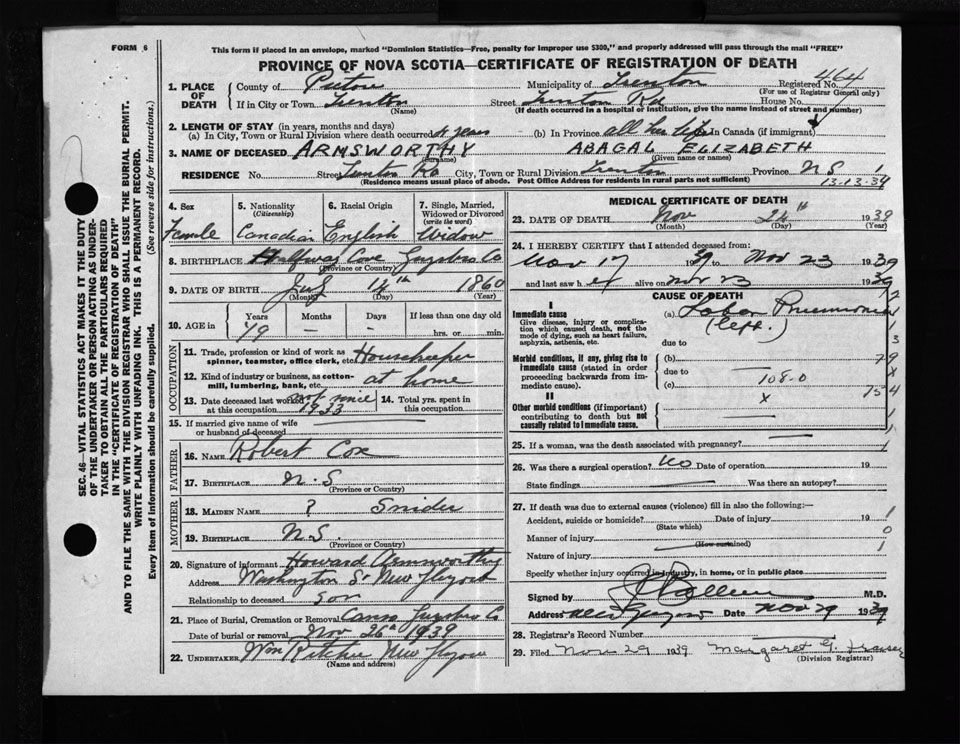 FORM 6
This form if placed in an envelope, marked "Dominion Statistics—Free, penalty for improper use $300," and properly addressed will pass through the mail "FREE"
PROVINCE OF NOVA SCOTIA—CERTIFICATE OF REGISTRATION OF DEATH
SEC. 46—VITAL STATISTICS ACT MAKES IT THE DUTY
OF THE UNDERTAKER OR PERSON ACTING AS UNDER-
TAKER TO OBTAIN ALL THE PARTICULARS REQUIRED
IN THE "CERTIFICATE OF REGISTRATION OF DEATH"
AND TO FILE THE SAME WITH THE DIVISION REGISTRAR WHO SHALL ISSUE THE BURIAL PERMIT.
WRITE PLAINLY WITH UNFADING INK. THIS IS A PERMANENT RECORD.
Every item of information should be carefully supplied. (See reverse side for instructions.)
1. PLACE OF DEATH County of Pictou Municipality of Trenton Registered No. 464
(For use of Registrar General only)
If in City or Town Trenton Street Trenton Rd House No.
(Name) (If death occurred in a hospital or institution, give the name instead of street and number)
2. LENGTH OF STAY (in years, months and days)
(a) In City, Town or Rural Division where death occurred years (b) In Province all her life In Canada (if immigrant)
3. NAME OF DECEASED ARMSWORTHY ABAGAL ELIZABETH
(Surname) (Given name or names)
RESIDENCE No. Street Trenton Rd City, Town or Rural Division Trenton Province N S
(Residence means usual place of abode. Post Office Address for residents in rural parts not sufficient)
13-13-34
4. Sex 5. Nationality 6. Racial Origin 7. Single, Married, Widowed or Divorced
(Citizenship) (write the word)
Female Canadian English Widow
8. BIRTHPLACE Halfway Cove Guysboro Co
(Province or Country)
9. DATE OF BIRTH 14th 1860
(Month) (Day) (Year)
10. AGE in Years Months Days If less than one day
79 — — hrs. or min.
OCCUPATION
11. Trade, profession or kind of work as spinner, teamster, office clerk, etc. Housekeeper
12. Kind of industry or business, as cotton-mill, lumbering, bank, etc. at home
13. Date deceased last worked at this occupation not since 1933 14. Total yrs. spent in this occupation
15. If married give name of wife or husband of deceased
FATHER
16. NAME Robert Cox
17. BIRTHPLACE N.S
(Province or Country)
MOTHER
18. MAIDEN NAME ? Snider
19. BIRTHPLACE N.S.
(Province or Country)
20. Signature of informant Howard Armsworthy
Address Washington St New Glasgow
Relationship to deceased son
21. Place of Burial, Cremation or Removal Canso Guysboro Co
Date of burial or removal Nov 26th 1939
22. UNDERTAKER Wm Ritchie New Glasgow
(Name and address)
MEDICAL CERTIFICATE OF DEATH
23. DATE OF DEATH Nov 24th 1939
(Month) (Day) (Year)
24. I HEREBY CERTIFY that I attended deceased from:
Nov 17 1939 to Nov 23 1939
and last saw her alive on Nov 23 1939
CAUSE OF DEATH
I
Immediate cause (a) Lobar Pneumonia
Give disease, injury or complication which caused death, not the mode of dying, such as heart failure, asphyxia, asthenia, etc. (left)
due to
Morbid conditions, if any, giving rise to immediate cause (stated in order proceeding backwards from immediate cause). (b)
due to
(c) 108-0
II
Other morbid conditions (if important) contributing to death but not causally related to immediate cause. x
25. If a woman, was the death associated with pregnancy?
26. Was there a surgical operation? No Date of operation 19
State findings Was there an autopsy?
27. If death was due to external causes (violence) fill in also the following:—
Accident, suicide or homicide? Date of injury 19
(State which)
Manner of injury
(How sustained)
Nature of injury
Specify whether injury occurred in industry, in home, or in public place
Signed by M.D.
Address New Glasgow Date Nov 29 1939
28. Registrar's Record Number
29. Filed Nov 29 1939 Margaret G. Fraser
(Division Registrar)